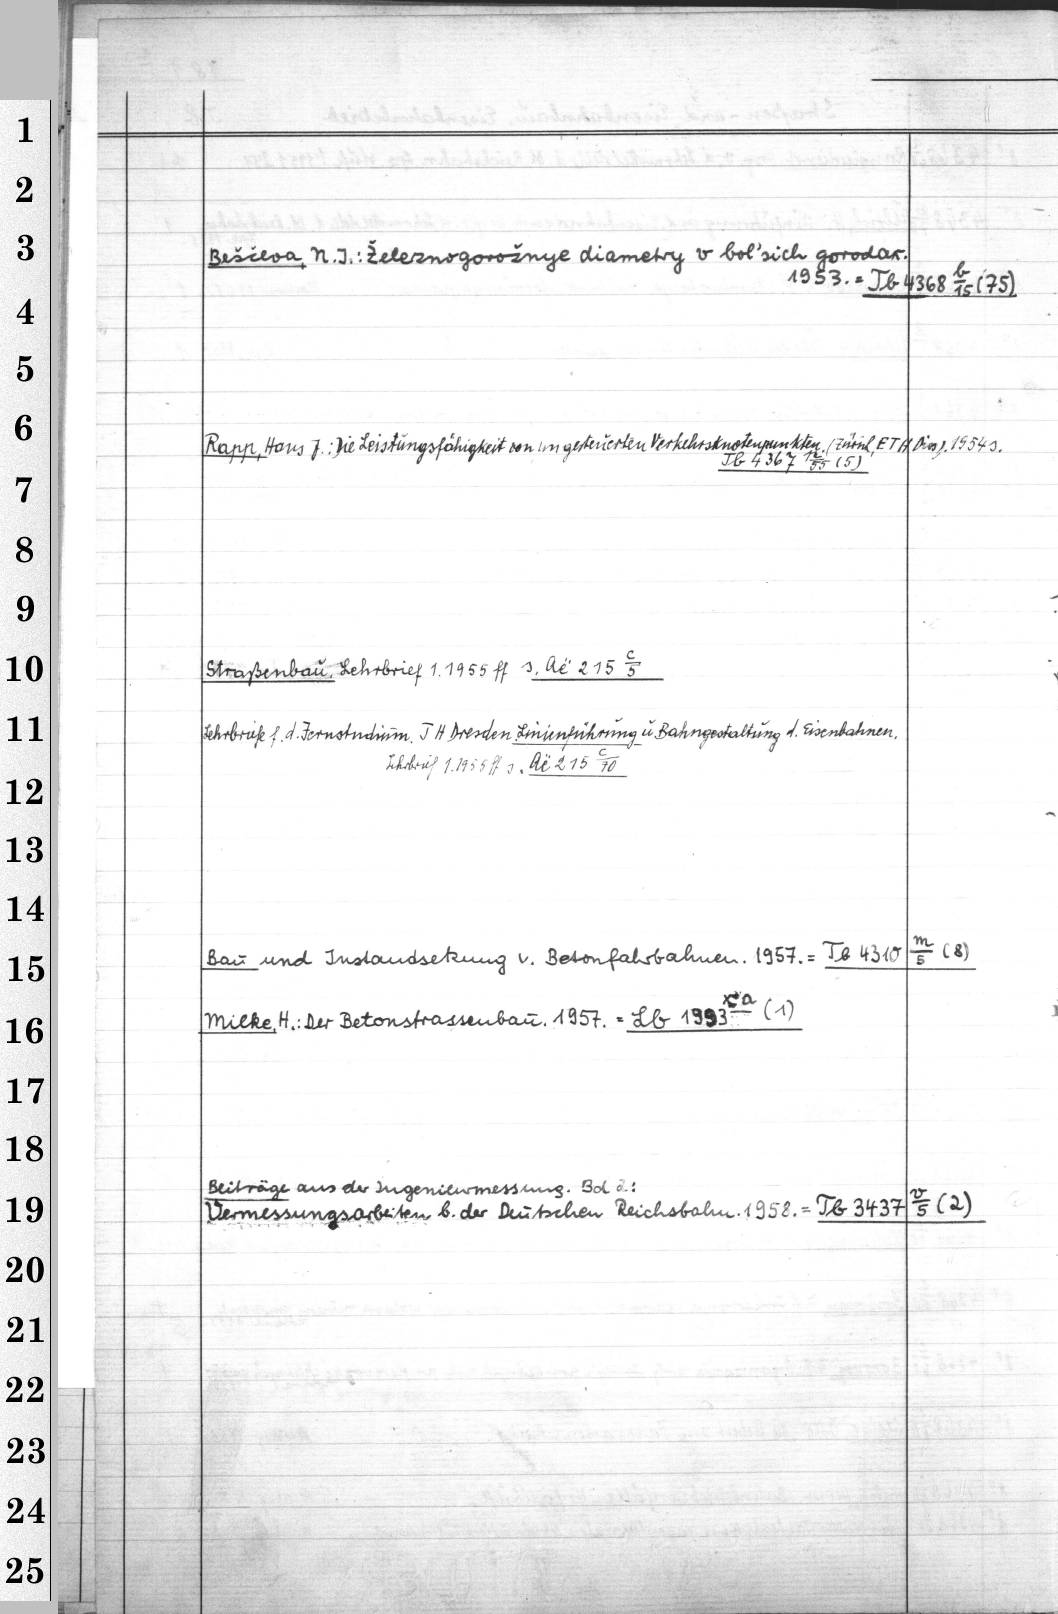 1
2
3
Beščeva, N. J.: Železnogorožnye diametry v bol'sich gorodax.
1953. = Tb 4368 b/15 (75)
4
5
6
Rapp, Hans J.: Die Leistungsfähigkeit von ungesteuerten Verkehrsknotenpunkten. (Zürich, ETH Diss). 1954 s.
Tb 4367 12/55 (5)
7
8
9
10
Straßenbau. Lehrbrief 1. 1955 ff s. Aë 215 c/5
11
Lehrbriefe f. d. Fernstudium. TH Dresden Linienführung u Bahngestaltung d. Eisenbahnen.
Lehrbrief 1. 1955 ff s. Aë 215 c/10
12
13
14
15
Bau und Instandsetzung v. Betonfahrbahnen. 1957. = Tb 4310 m/5 (8)
16
Milke, H.: Der Betonstrassenbau. 1957. = Lb 1993 a (1)
17
18
Beiträge aus der Ingenieurmessung. Bd 2:
19
Vermessungsarbeiten b. der Deutschen Reichsbahn. 1958. = Tb 3437 v/5 (2)
20
21
22
23
24
25